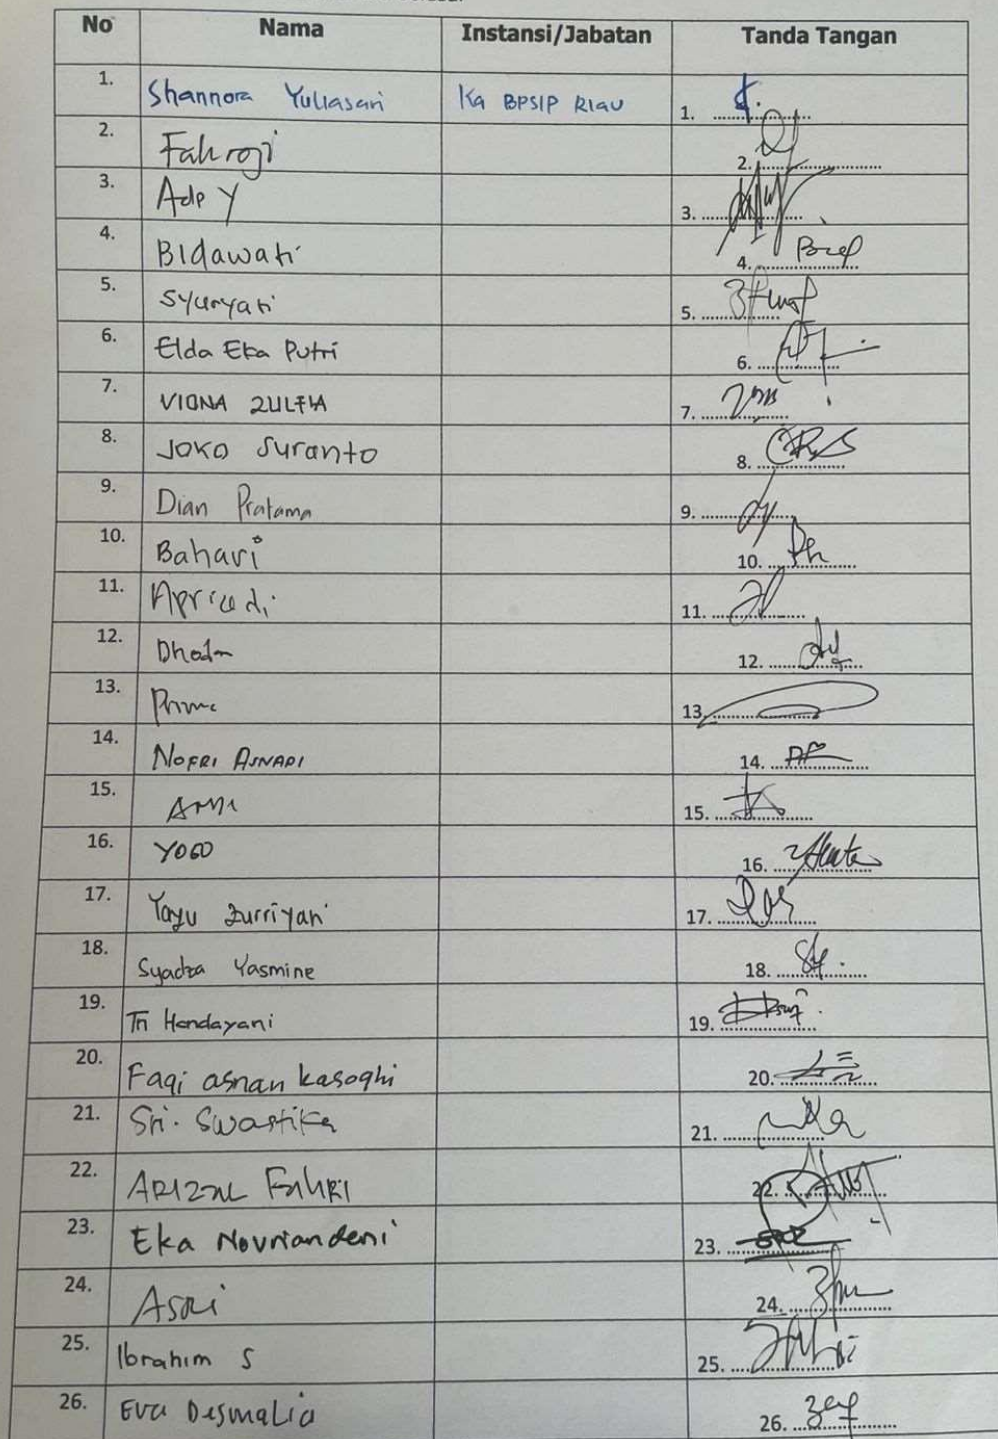 No Nama Instansi/Jabatan Tanda Tangan
1. Shannora Yuliasari Ka BPSIP Riau 1.
2. Fahroji 2.
3. Ade Y 3.
4. Bidawati 4.
5. Syuryati 5.
6. Elda Eka Putri 6.
7. VIONA ZULFIA 7.
8. Joko Suranto 8.
9. Dian Pratama 9.
10. Bahari 10.
11. Apriadi 11.
12. 12.
13. 13.
14. NOFRI ASNADI 14.
15. 15.
16. YOGO 16.
17. Yayu Zurriyati 17.
18. Syadza Yasmine 18.
19. Tri Handayani 19.
20. Faqi asnan kasoghi 20.
21. Sri. Swastika 21.
22. ARIZAL FAHRI 22.
23. Eka Novriandeni 23.
24. Asri 24.
25. Ibrahim S 25.
26. Eva Desmalia 26.